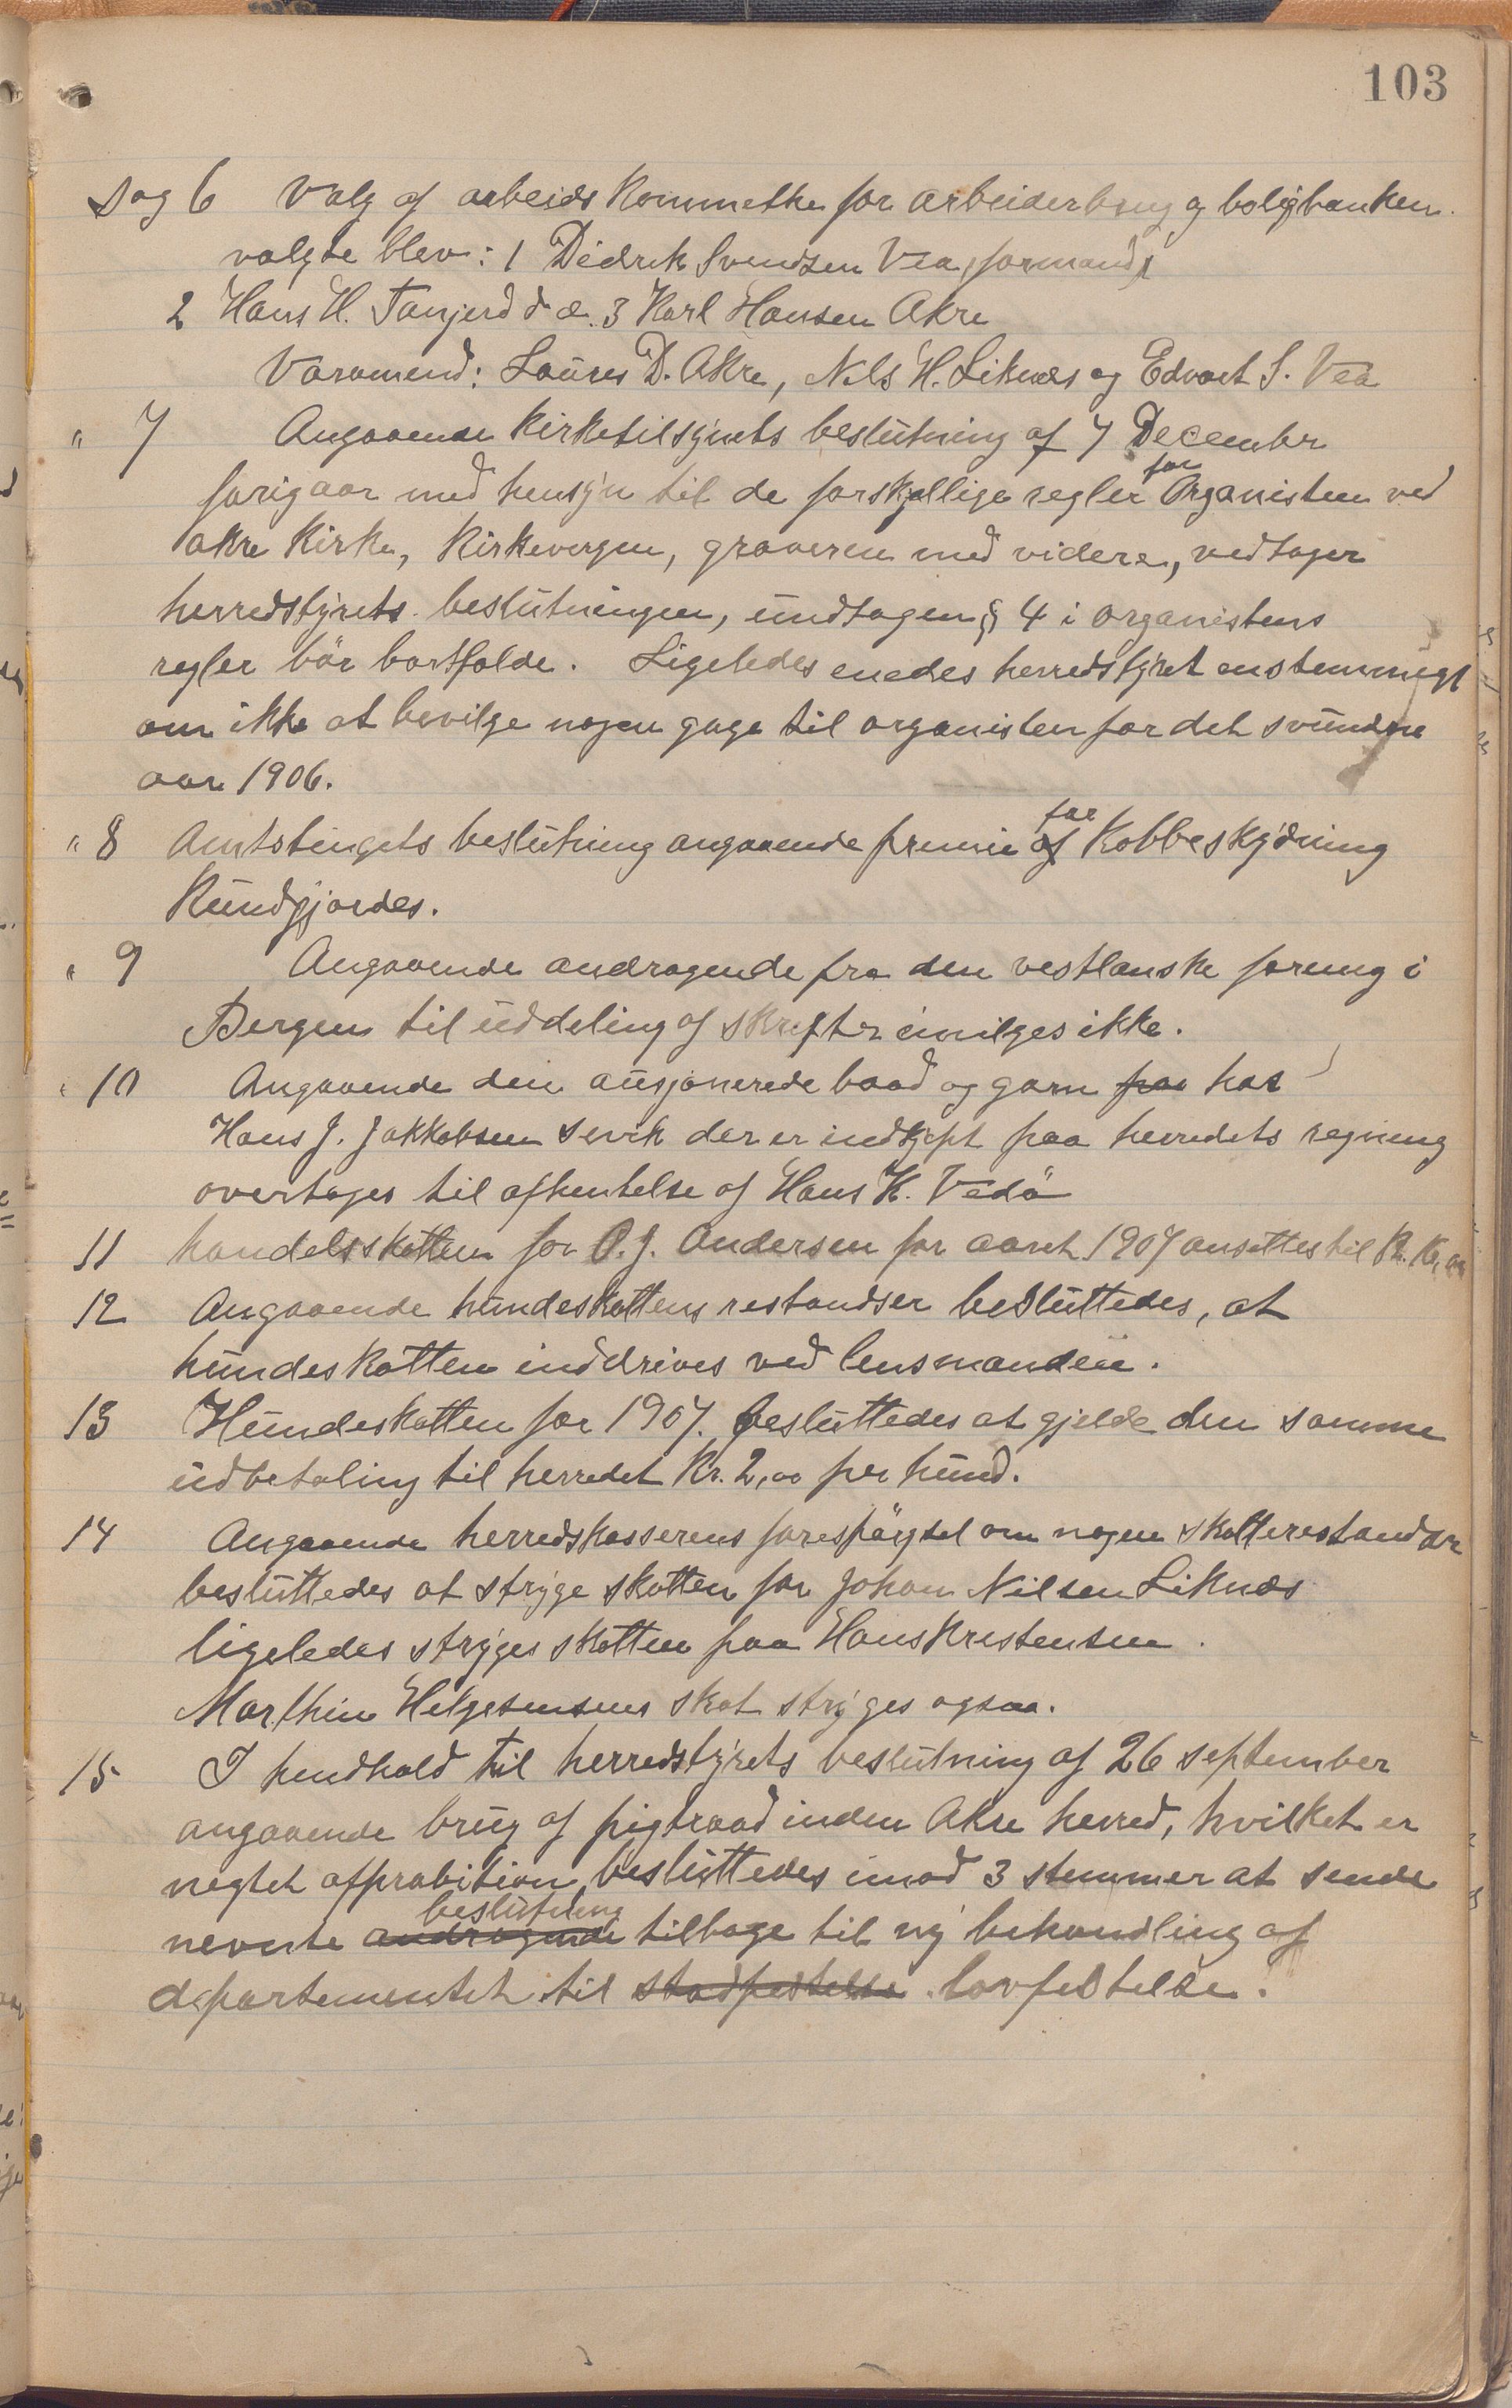 103
Sag 6 Valg af arbeidskommetke for arbeiderbrug og boligbanken.
valgte blev: 1 Didrik Svendsen Vea, formand,
2 Hans H. Tanjerd d. æ. 3 Karl Hansen Akre
Varamend: Laures D. Akre, Nils H. Liknes og Edvart S. Vea
" 7 Angaaende kirketilsynets beslutning af 7 December
forigaar med hensyn til de forskjellige regler for Organisten ved
Akre Kirke, Kirkevergen, graveren med videre, vedtager
herredstyrets beslutningen, undtagen § 4 i organistens
regler bör bortfalde. Ligeledes enedes herredstyret enstemmigt
om ikke at bevilge nogen gage til organisten for det svundne
aar 1906.
" 8 Amtstingets beslutning angaaende premie af for Kobbeskydning
Kundgjordes.
" 9 Angaaende andragende fra den vestlanske forening i
Bergen til uddeling af skrefter invilges ikke.
" 10 Angaaende den ausjonerede baad og garn fra hos
Hans J. Jakkobsen Sevik der er indkjøpt paa herredets regning
overtages til afhentelse af Hans K. Vedö
11 handelsskatten for O. J. Andersen for aaret 1907 ansettes til Kr. 16,00
12 Angaaende hundeskattens restandser besluttedes, at
hundeskatten inddrives ved lensmanden.
13 Hundeskatten for 1907. besluttedes at gjelde den samme
udbetaling til herredet Kr. 2,00 per hund.
14 Angaaende herredskasserens forespörgsel om nogen skatterestandser
besluttedes at stryge skatten for Johan Nilsen Liknes
ligeledes stryges skatten paa Hans Kristensen.
Marthin Helgesensens skat stryges ogsaa.
15 I hendhold til herredstyrets beslutning af 26 september
angaaende brug af pigtraad inden Akre herred, hvilket er
negtet approbition, besluttedes imod 3 stemmer at sende
nevnte andragende beslutning tilbage til ny behandling af
departementet til stadfestelse lovfestelse.